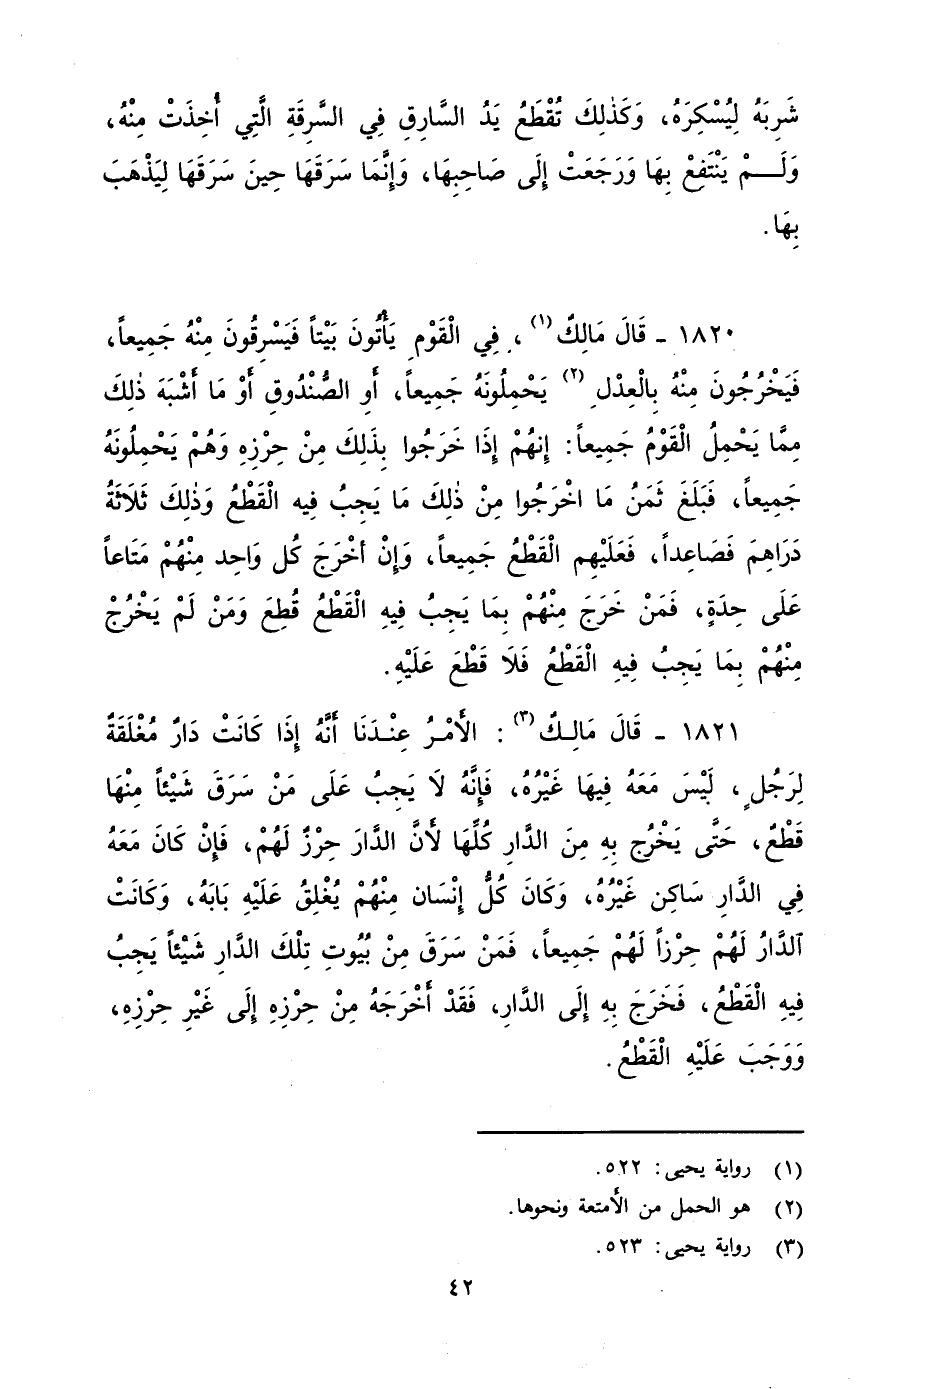 شَرِبَهُ لِيُسْكِرَهُ، وَكَذٰلِكَ تُقْطَعُ يَدُ السَّارِقِ فِي السَّرِقَةِ الَّتِي أُخِذَتْ مِنْهُ،
وَلَـــمْ يَنْتَفِعْ بِهَا وَرَجَعَتْ إِلَى صَاحِبِهَا، وَإِنَّمَا سَرَقَهَا حِينَ سَرَقَهَا لِيَذْهَبَ
بِهَا.
١٨٢٠ - قَالَ مَالِكٌ (١)، فِي الْقَوْمِ يَأْتُونَ بَيْتاً فَيَسْرِقُونَ مِنْهُ جَمِيعاً،
فَيَخْرُجُونَ مِنْهُ بِالْعِدْلِ (٢) يَحْمِلُونَهُ جَمِيعاً، أَوِ الصُّنْدُوقِ أَوْ مَا أَشْبَهَ ذٰلِكَ
مِمَّا يَحْمِلُ الْقَوْمُ جَمِيعاً: إِنهُمْ إِذَا خَرَجُوا بِذَلِكَ مِنْ حِرْزِهِ وَهُمْ يَحْمِلُونَهُ
جَمِيعاً، فَبَلَغَ ثَمَنُ مَا اخْرَجُوا مِنْ ذٰلِكَ مَا يَجِبُ فِيه الْقَطْعُ وَذٰلِكَ ثَلَاثَةُ
دَرَاهِمَ فَصَاعِداً، فَعَلَيْهِم الْقَطْعُ جَمِيعاً، وَإِنْ أخْرَجَ كُل وَاحِد مِنْهُمْ مَتَاعاً
عَلَى حِدَةٍ، فَمَنْ خَرَجَ مِنْهُمْ بِمَا يَجِبُ فِيهِ الْقَطْعُ قُطِعَ وَمَنْ لَمْ يَخْرُجْ
مِنْهُمْ بِمَا يَجِبُ فِيهِ الْقَطْعُ فَلَا قَطْعَ عَلَيْهِ.
١٨٢١ - قَالَ مَالِـكٌ (٣): الأَمْـرُ عِنْـدَنَا أَنَّهُ إِذَا كَانَتْ دَارٌ مُغْلَقَةٌ
لِرَجُلٍ، لَيْسَ مَعَهُ فِيهَا غَيْرُهُ، فَإِنَّهُ لَا يَجِبُ عَلَى مَنْ سَرَقَ شَيْئاً مِنْهَا
قَطْعٌ، حَتَّى يَخْرُج بِهِ مِنَ الدَّارِ كُلِّهَا لأَنَّ الدَّارَ حِرْزٌ لَهُمْ، فَإِنْ كَانَ مَعَهُ
فِي الدَّارِ سَاكِن غَيْرُهُ، وَكَانَ كُلُّ إِنْسَان مِنْهُمْ يُغْلِقُ عَلَيْهِ بَابَهُ، وَكَانَتْ
آلدَّارُ لَهُمْ حِرْزاً لَهُمْ جَمِيعاً، فَمَنْ سَرَقَ مِنْ بُيُوتِ تِلْكَ الدَّارِ شَيْئاً يَجِبُ
فِيهِ الْقَطْعُ، فَخَرَجَ بِهِ إِلَى الدَّارِ، فَقَدْ أَخْرَجَهُ مِنْ حِرْزِهِ إِلَى غَيْرِ حِرْزِهِ،
وَوَجَبَ عَلَيْهِ الْقَطْعُ.
(١) رواية يحيى: ٥٢٢.
(٢) هو الحمل من الأمتعة ونحوها.
(٣) رواية يحيى: ٥٢٣.
٤٢